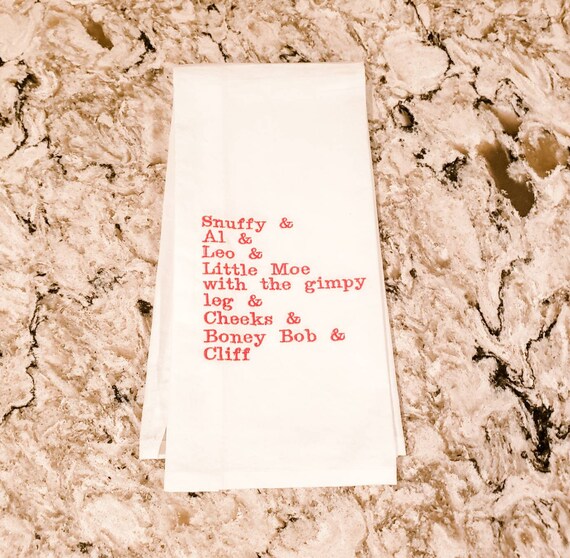 Snuffy &
Al &
Leo &
Little Moe
with the gimpy
leg &
Cheeks &
Boney Bob &
Cliff